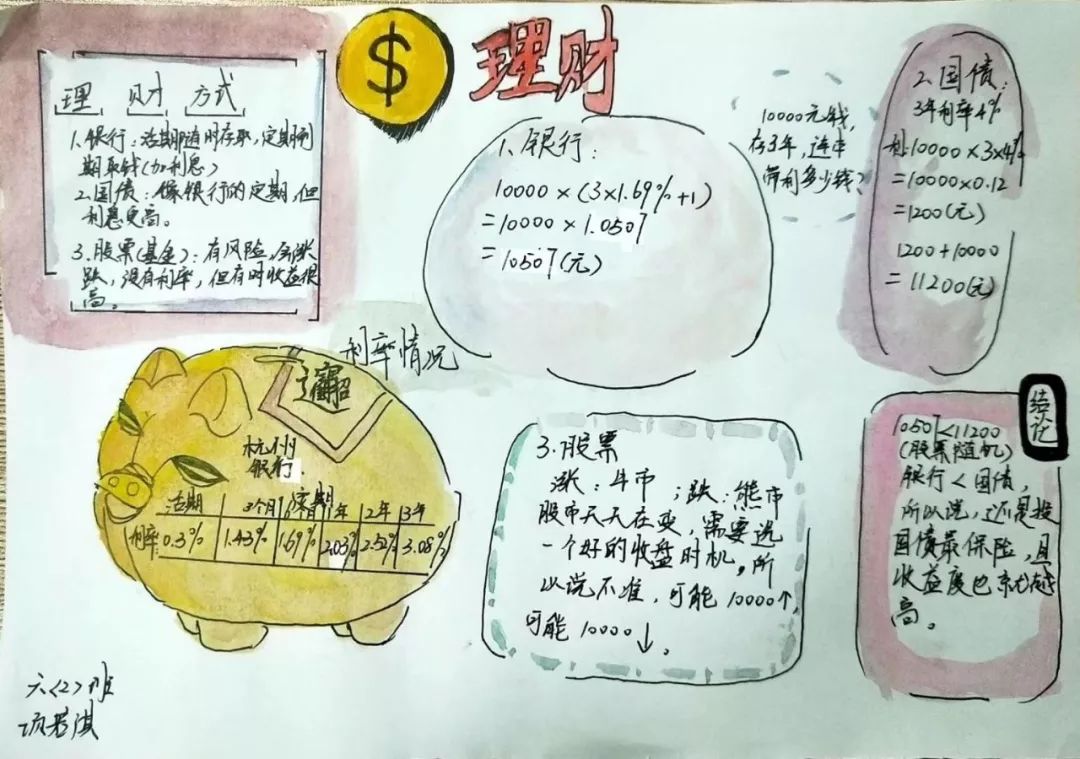 $
理财
理 财 方式
1.银行:活期随时存取,定期到
期取钱(加利息)
2.国债:像银行的定期,但
利息更高。
3.股票(基金):有风险,会涨
跌,没有利率,但有时收益很
高。
1、银行:
10000×(3×1.69%+1)
=10000×1.0507
=10507(元)
10000元钱,
存3年,连本
带利多少钱?
2.国债:
3年利率4%
利:10000×3×4%
=10000×0.12
=1200(元)
1200+10000
=11200(元)
利率情况
杭州
银行
活期 3个月 1年 2年 3年
利率 0.3% 1.43% 1.69% 2.03% 2.52% 3.08%
3.股票
涨:牛市;跌:熊市
股市天天在变,需要选
一个好的收盘时机,所
以说不准,可能10000↑,
可能10000↓。
结论
10507<11200
(股票随机)
银行<国债,
所以说,还是投
国债最保险,且
收益度也就越
高。
六<2>班
项若淇